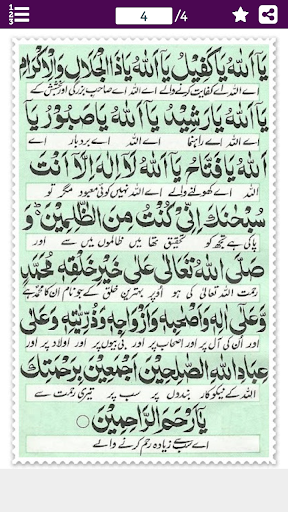 4 /4
يَآ اَللّٰهُ يَا كَفِيْلُ يَآ اَللّٰهُ يَا ذَا الْجَلَالِ وَالْاِكْرَامِ
اے اللہ اے کفایت کرنے والے اے اللہ اے صاحب بزرگی اور بخشش کے
يَآ اَللّٰهُ يَا رَشِيْدُ يَآ اَللّٰهُ يَا صَبُوْرُ يَآ
اے اللہ اے راہنما اے اللہ اے بردبار اے
اَللّٰهُ يَا فَتَّاحُ يَآ اَللّٰهُ لَآ اِلٰهَ اِلَّآ اَنْتَ
اللہ اے کھولنے والے اے اللہ نہیں کوئی معبود مگر تو
سُبْحٰنَكَ اِنِّيْ كُنْتُ مِنَ الظّٰلِمِيْنَ وَ
پاکی ہے تجھ کو تحقیق تھا میں ظالموں میں سے اور
صَلَّى اللّٰهُ تَعَالٰى عَلٰى خَيْرِ خَلْقِهٖ مُحَمَّدٍ
رحمت اللہ تعالیٰ کی ہو اُوپر بہترین خلق کے جو نام ان کا محمد ہے
وَّعَلٰٓى اٰلِهٖ وَاَصْحَابِهٖ وَاَزْوَاجِهٖ وَذُرِّيّٰتِهٖ وَعَلٰى
اور اُن کی آل پر اور اصحاب پر اور بی بیوں پر اور اولاد پر اور
عِبَادِ اللّٰهِ الصّٰلِحِيْنَ اَجْمَعِيْنَ بِرَحْمَتِكَ
اللہ کے نیکوکار بندوں پر سب پر تیری رحمت سے
يَآ اَرْحَمَ الرَّاحِمِيْنَ
اے سب سے زیادہ رحم کرنے والے